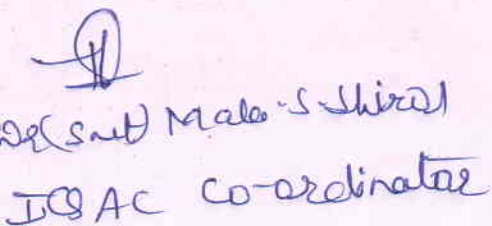 Dr(Smt) Mala.S.Shiral
IQAC Co-ordinator